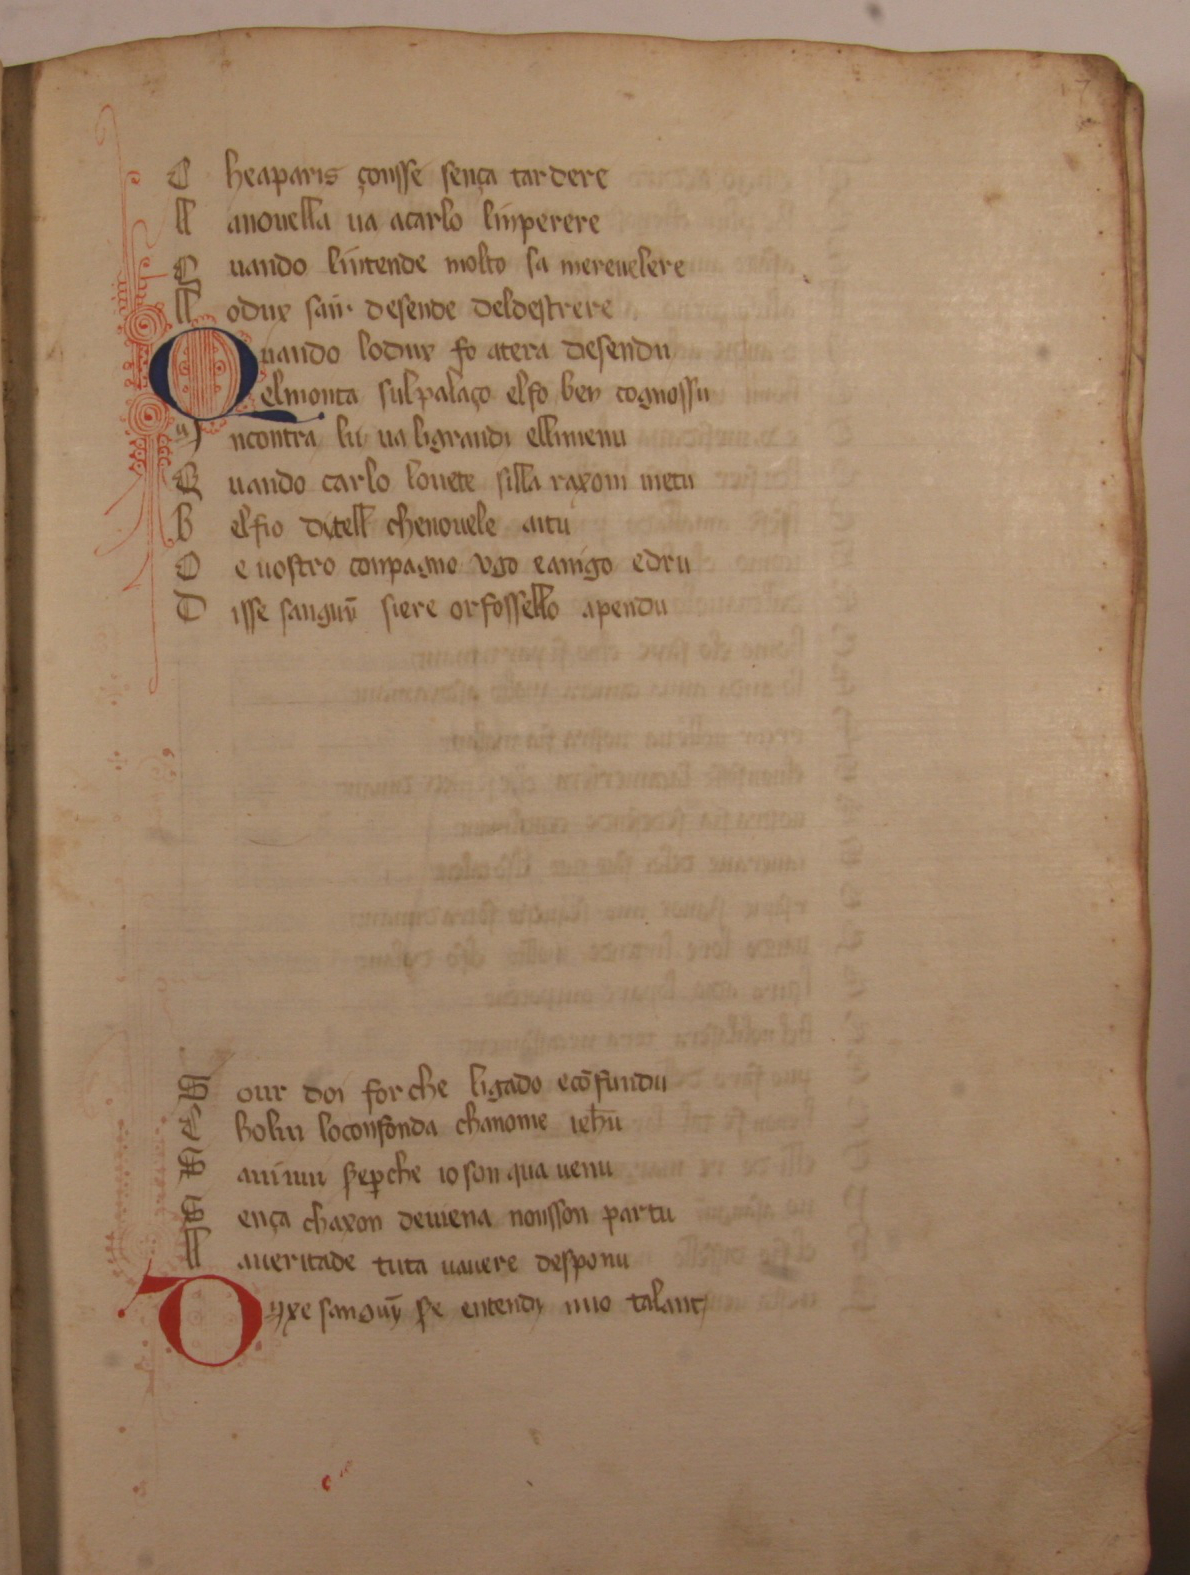 C heaparis çonsse sença tardere
ll anouella ua acarlo linperere
Q uando lintende molto sa mereuelere
ll odux san desende deldestrere
Quando lodux fo atera desendu
E elmonta sulpalaço elfo ben cognossu
I ncontra lu ua ligrandi elimenu
Q uando carlo louete silla raxoni metu
B elfio ditell chenouele aitu
O e uostro conpagno vgo eamigo edru
D isse sanguin siere orfossello apendu
S our doi forche ligado ecōfundu
C holui loconfonda chanome iehū
S auiuu per che io son qua uenu
S ença chaxon deuiena nonsson partu
ll aueritade tuta uauere desponu
Dyxe sanguin se entendy mio talant